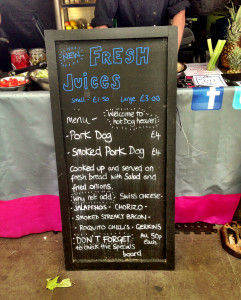 NEW FRESH
Juices
Small - £1.50 Large £3.00
menu - Welcome to
hot Dog heaven
- Pork Dog £4
- Smoked Pork Dog £4
cooked up and served on
fresh bread with Salad and
fried onions.
why not add - SWISS CHEESE -
JALAPENOS - CHORIZO -
- SMOKED STREAKY BACON -
- ROQUITO CHILI'S - GERKINS
DON'T FORGET ALL 50p
to check the specials each
board